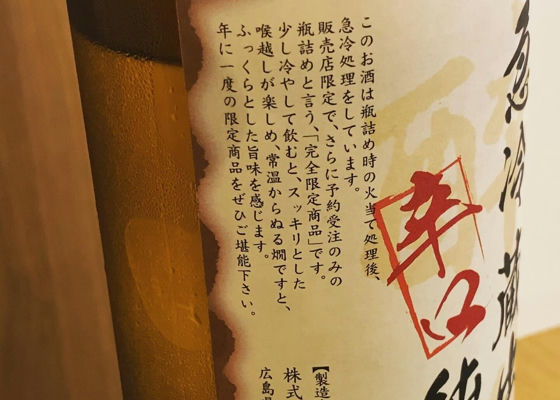 急冷蔵出
辛口
純
このお酒は瓶詰め時の火当て処理後、
急冷処理をしています。
販売店限定で、さらに予約受注のみの
瓶詰めと言う、「完全限定商品」です。
少し冷やして飲むと、スッキリとした
喉越しが楽しめ、常温からぬる燗ですと、
ふっくらとした旨味を感じます。
年に一度の限定商品をぜひご堪能下さい。
【製造
株式
広島